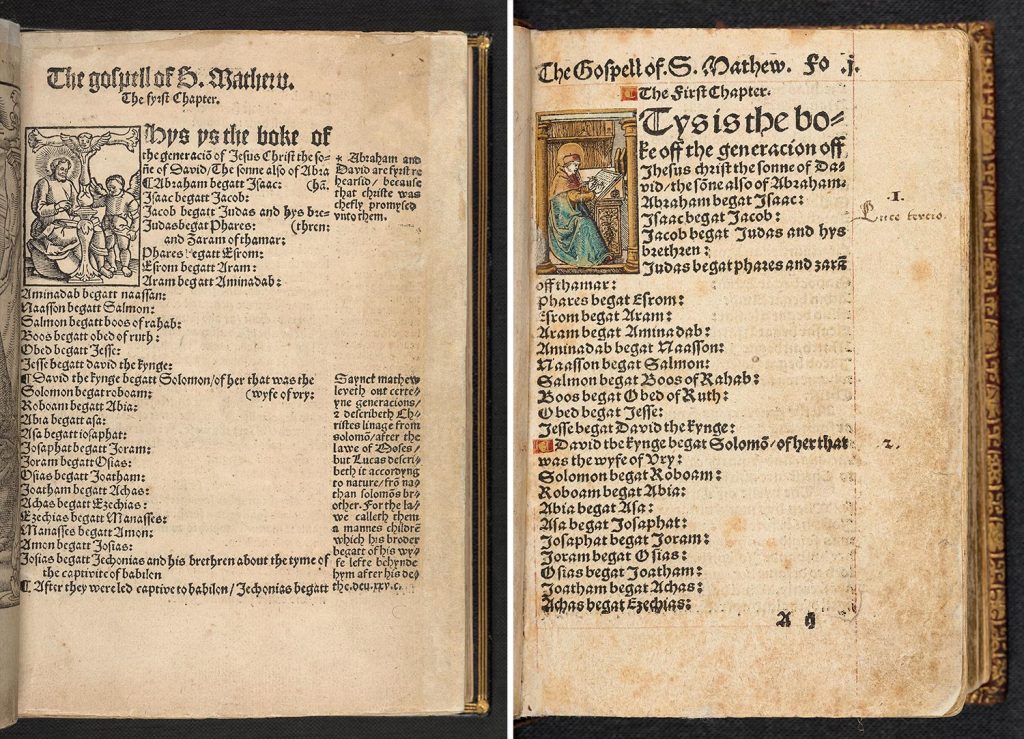 The gospell of S. Mathew.
The fyrst Chapter.
Hys ys the boke of
the generaciō of Jesus Christ the so=
ne of David/The sonne also of Abra
¶Abraham begatt Isaac: (hā.
Isaac begatt Jacob:
Jacob begatt Judas and hys bre=
Judas begat Phares: (thren:
and Zaram of thamar:
Phares begatt Esrom:
Esrom begatt Aram:
Aram begatt Aminadab:
Aminadab begatt naassan:
Naasson begatt Salmon:
Salmon begatt boos of rahab:
Boos begatt obed of ruth:
Obed begatt Jesse:
Jesse begatt david the kynge:
¶ David the kynge begatt Solomon/of her that was the
Solomon begat roboam: (wyfe of vry:
Roboam begatt Abia:
Abia begatt asa:
Asa begatt iosaphat:
Josaphat begatt Joram:
Joram begatt Osias:
Osias begatt Joatham:
Joatham begatt Achas:
Achas begatt Ezechias:
Ezechias begatt Manasses:
Manasses begatt Amon:
Amon begatt Josias:
Josias begatt Jechonias and his brethren about the tyme of
the captivite of babilon
¶ After they were led captive to babilon/Jechonias begatt
* Abraham and
David are fyrst re
hearsid/ because
that christe was
chefly promysed
vnto them.
Saynct mathew
leveth out certe=
yne generacions/
z describeth Ch=
ristes linage from
solomō/after the
lawe of Moses/
but Lucas descri=
beth it accordyng
to nature/frō na=
than solomōs br=
other. For the la=
we calleth them
a mannes childrē
which his broder
begatt of his wy=
fe lefte behynde
hym after his de=
the.deu.xxv.c.
The Gospell of. S. Mathew. Fo .j.
The First Chapter.
Tys is the bo=
ke off the generacion off
Jhesus christ the sonne of Da=
vid/the sōne also of Abraham.
Abraham begat Isaac:
Isaac begat Jacob:
Jacob begat Judas and hys
brethren:
Judas begat phares and zarā
off thamar:
Phares begat Esrom:
Esrom begat Aram:
Aram begat Aminadab:
Aminadab begat Naasson:
Naasson begat Salmon:
Salmon begat Boos of Rahab:
Boos begat Obed of Ruth:
Obed begat Jesse:
Jesse begat David the kynge:
¶ David the kynge begat Solomō/of her that
was the wyfe of Vry:
Solomon begat Roboam:
Roboam begat Abia:
Abia begat Asa:
Asa begat Josaphat:
Josaphat begat Joram:
Joram begat Osias:
Osias begat Joatham:
Joatham begat Achas:
Achas begat Ezechias:
A ij
.1.
Luce tercio.
2.